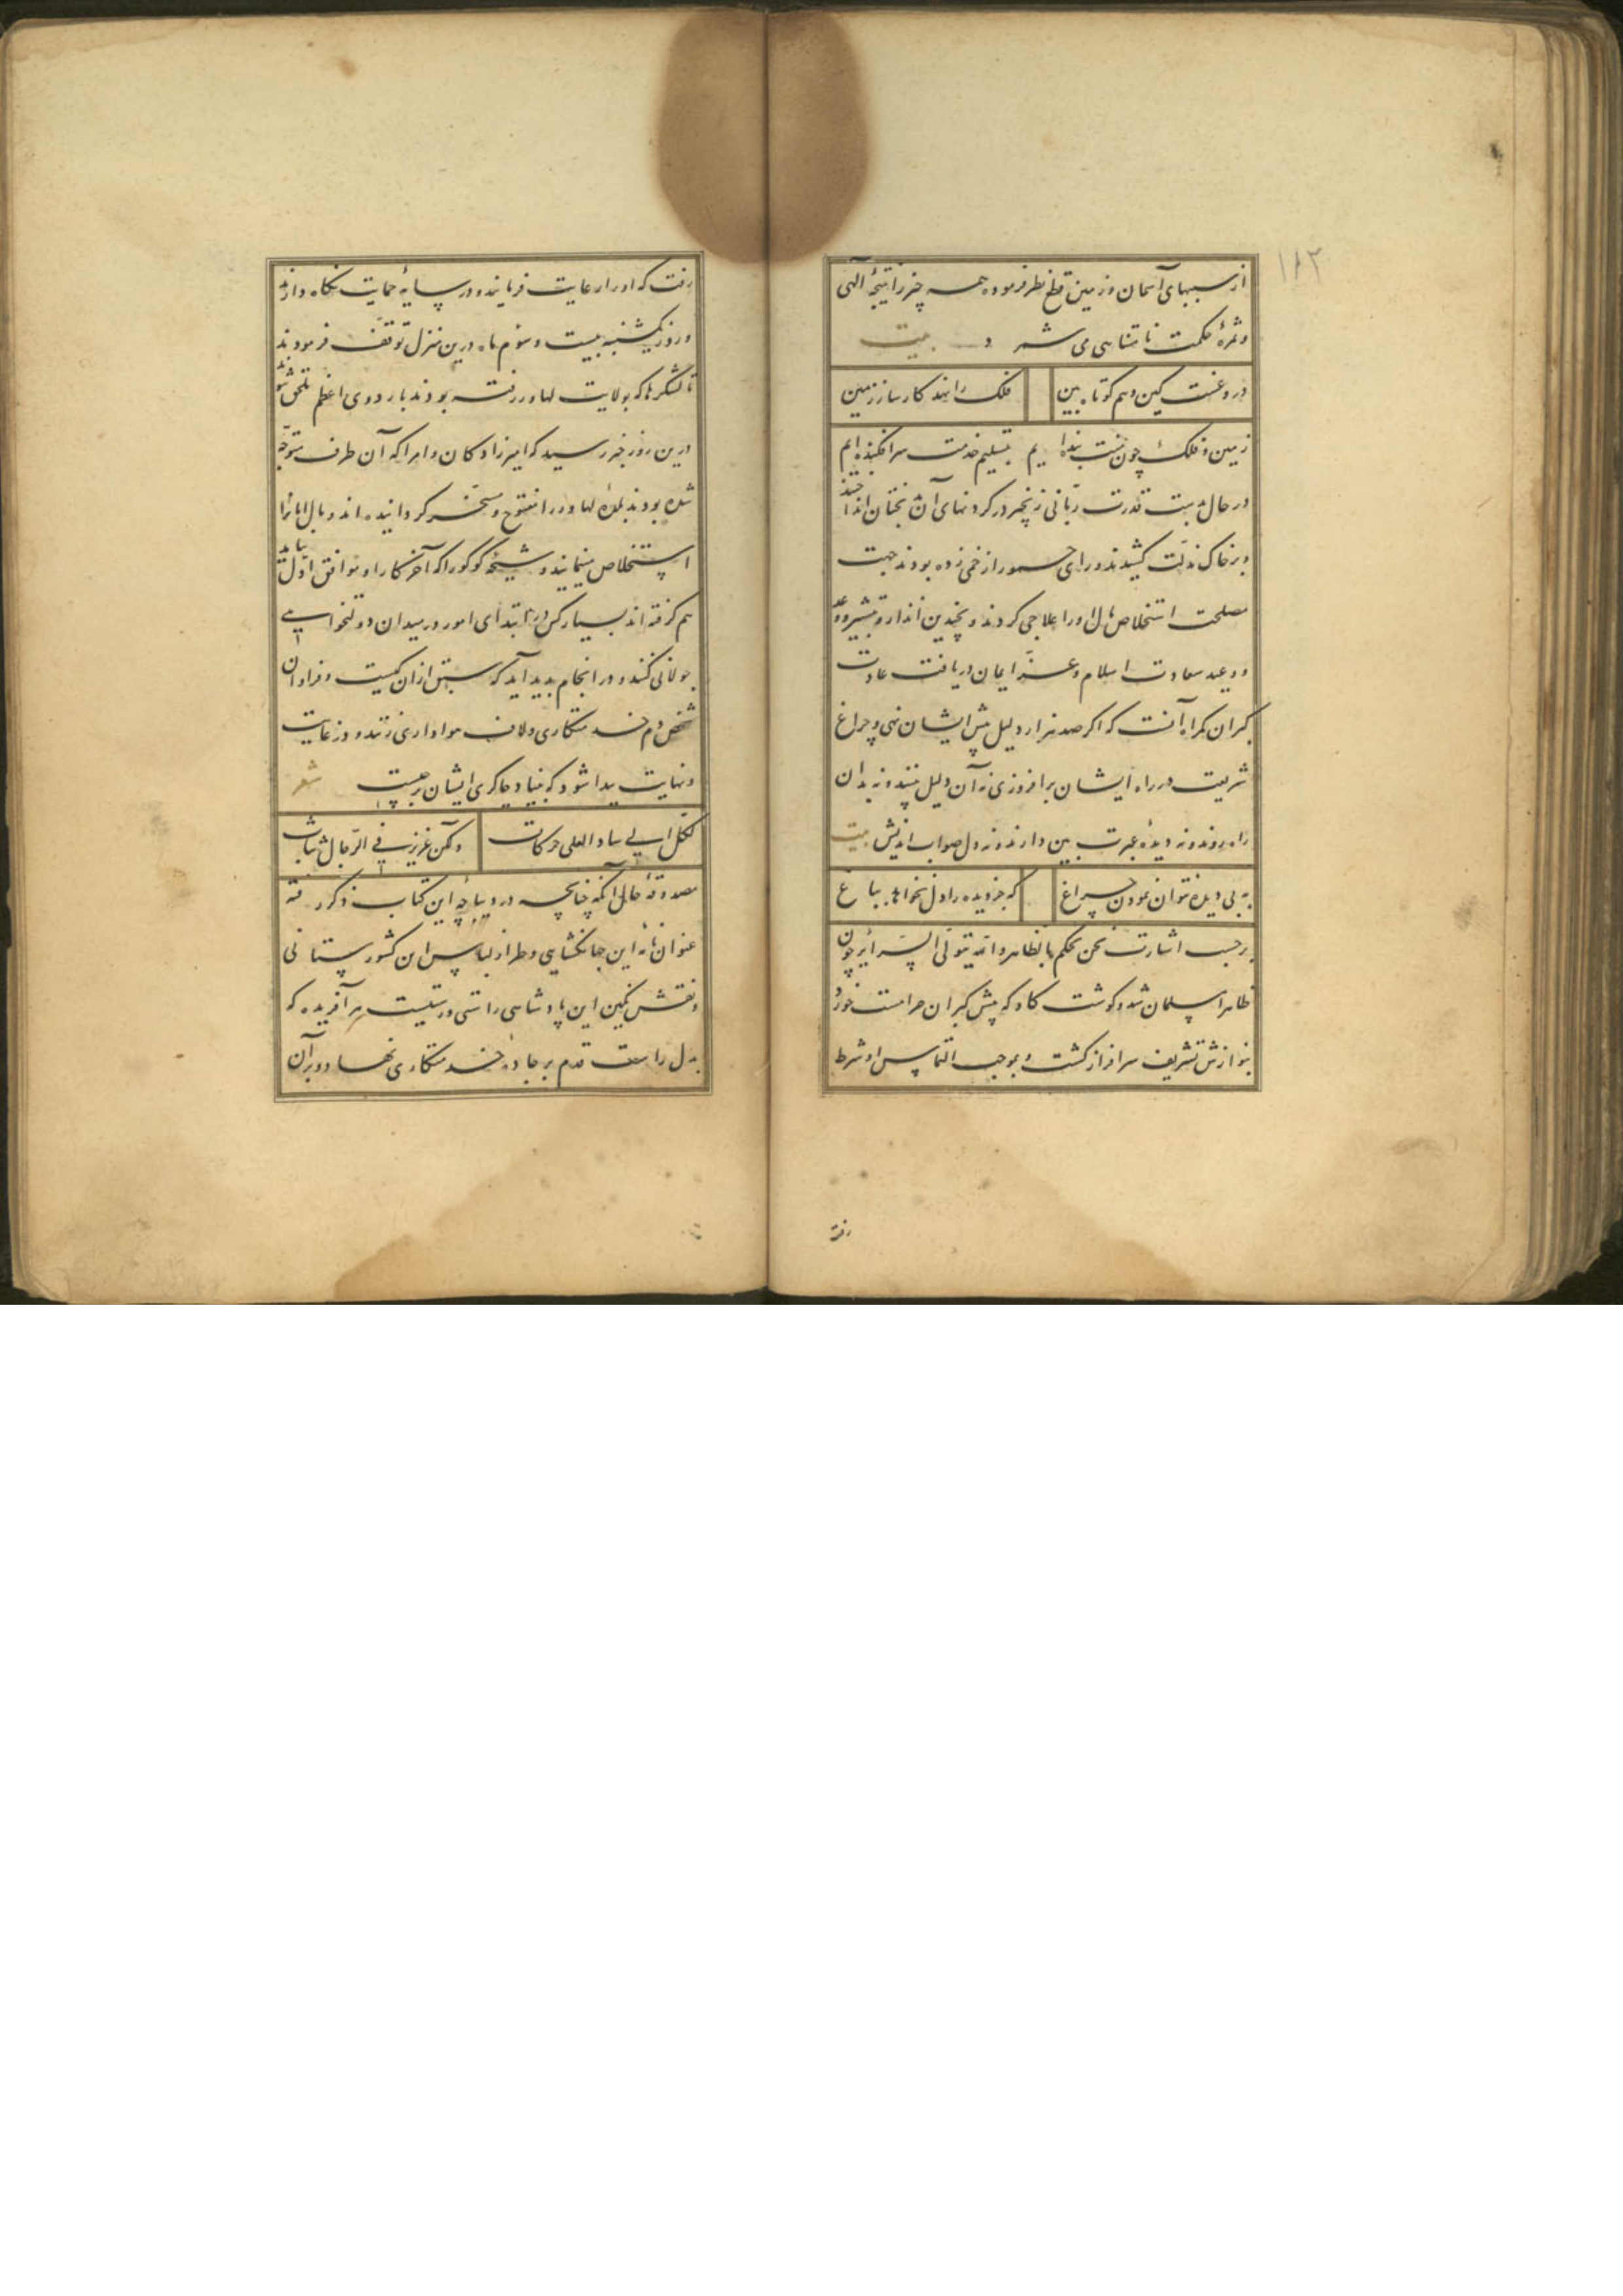 ۱۱۳
از سببهای آسمان و زمین قطع نظر فرموده همه چیز را نتیجۀ آلهی
و ثمرۀ حکمت نامتناهی می شمرد بیت
دروغست کین وهم کوتاه بین فلک را نهد کارساز زمین
زمین و فلک چون نیست بنده ایم بتسلیم خدمت سرافکنده ایم
در حال بدست قدرت ربّانی زنجیر در گردنهای آن بختان انداختند
و بر خاک مذلّت کشیدند و رای را چند زخمی زده بودند جهت
مصلحت استخلاص مال او را علاجی کردند و بچندین انذار و تبشیر و وعد
و وعید سعادت اسلام و عزّ ایمان دریافت عادت
کبران کمراه آنست که اکر صد هزار دلیل پیش ایشان نهی و چراغ
شریعت در راه ایشان برافروزی نه آن دلیل بینند و نه بدان
راه روند و نه دیدۀ عبرت بین دارند و نه دل صواب اندیش بیت
به بی دیده نتوان نمودن چراغ که جز دیده را دل نخواهد بباغ
بر حسب اشارت نحن نحکم بالظاهر و الله یتولّی السّرائر چون
ظاهرا مسلمان شد و کوشت کاو که پیش کبران حرامست خورد
بنوازش تشریف سرافراز کشت و بموجب التماس او شرط
رفت
رفت که او را رعایت فرمایند و در سایۀ حمایت نکاه دارند
و روز یکشنبه بیست و سوم ماه درین منزل توقّف فرمودند
تا لشکرها که بولایت لهاور رفته بودند باردوی اعظم ملحق شوند
درین روز خبر رسید که امیرزادکان و امرا که آن طرف متوجّه
شده بودند بلدۀ لهاور را مفتوح و مسخّر کردانیده اند و مال امانرا
استخلاص مینمایند و شیخۀ کوکور را که آخر کار او موافق اوّل نیامد
هم کرفته اند بسیار کس در ابتدای امور در میدان دولتخواهی
جولانی کنند و در انجام بدید آید که سبق از آن کیست و فراوان
شخص دم خدمتکاری و لاف هواداری زنند و در غایت
و نهایت پیدا شود که بنیاد چاکری ایشان بر چیست شعر
لکلّ الی شاو العلی حرکات و لکن عزیز فی الرّجال ثبات
مصدوقۀ حال آنکه چنانچه در دیباچۀ این کتاب ذکر رفته
عنوان نامۀ این جهانکشایی و طراز لباس این کشورستانی
و نقش نکین این پادشاهی راستی و رستیست هر آفریده که
بدل راست قدم بر جادۀ خدمتکاری نهاد و بر آن